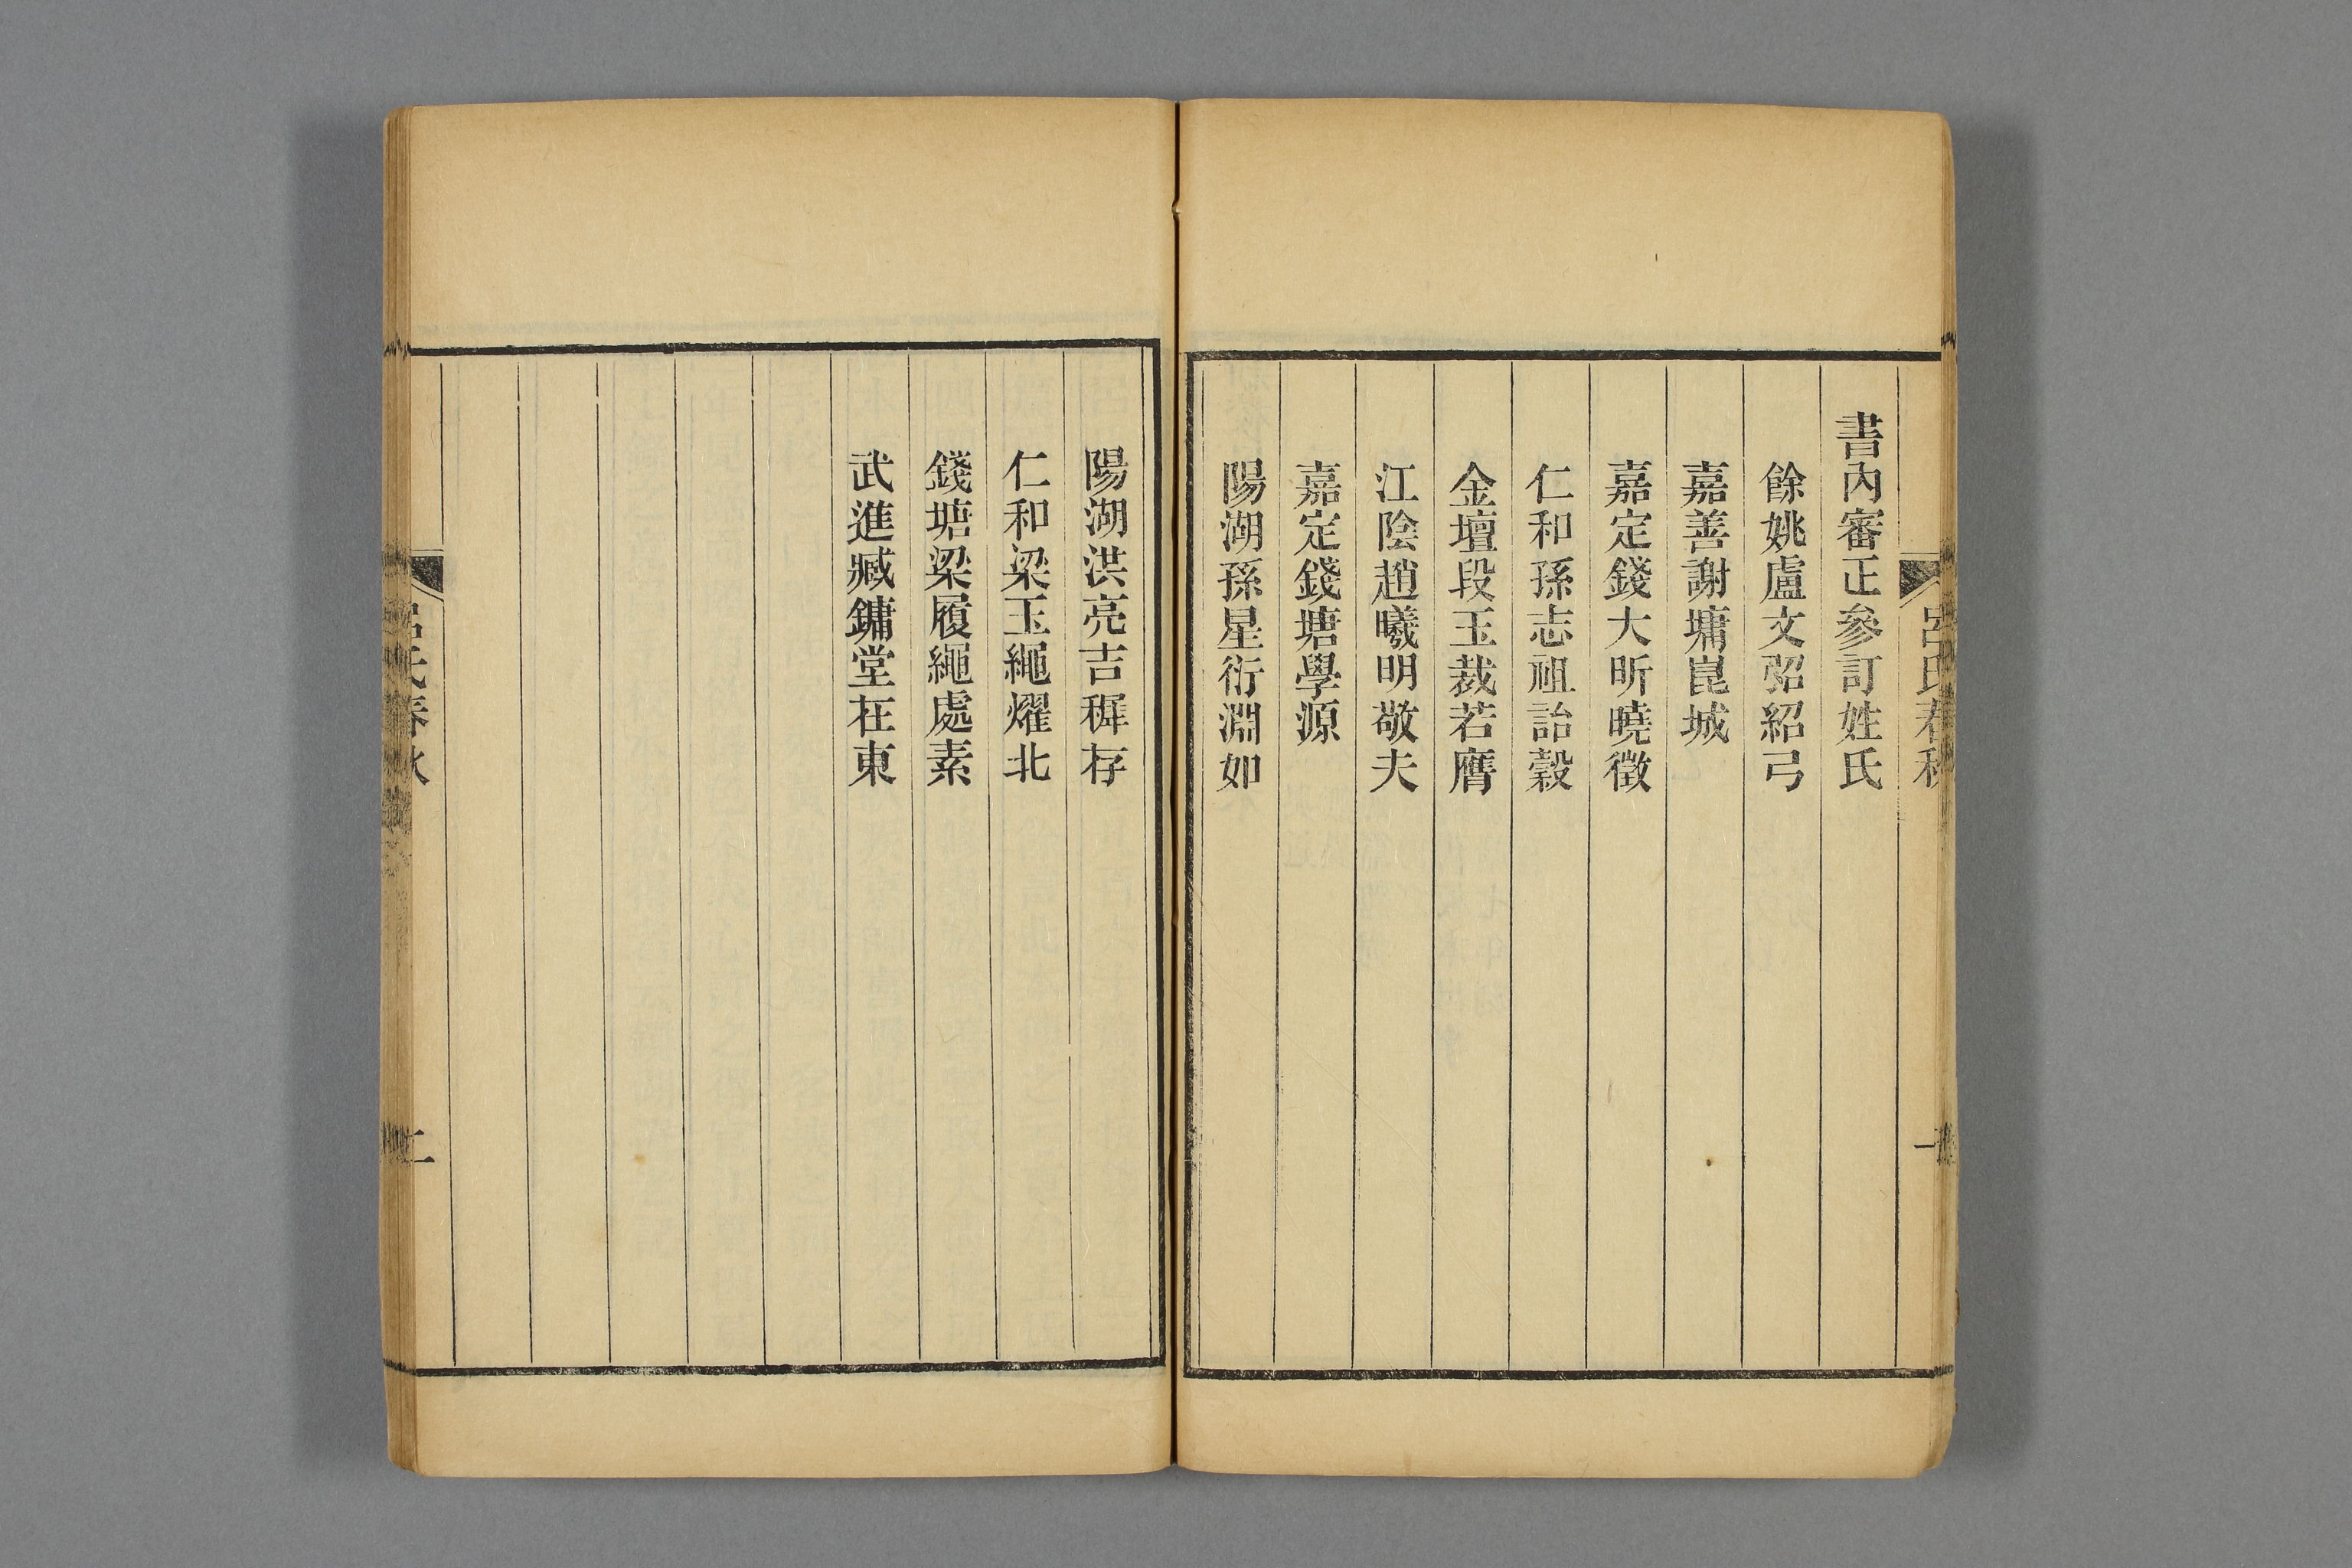 呂氏春秋
一
書內審正參訂姓氏
餘姚盧文弨紹弓
嘉善謝墉崑城
嘉定錢大昕曉徵
仁和孫志祖詒穀
金壇段玉裁若膺
江陰趙曦明敬夫
嘉定錢塘學源
陽湖孫星衍淵如
陽湖洪亮吉穉存
仁和梁玉繩燿北
錢塘梁履繩處素
武進臧鏞堂在東
呂氏春秋
二